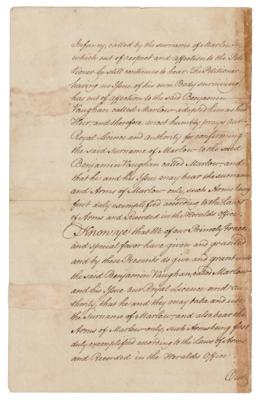 Infancy, called by the Surname of Marlow
which out of respect and affection to the Peti
tioner he still continues to bear. The Petitioner
having no Issue of his own Body surviving
has out of affection to the said Benjamin
Vaughan called Marlow adopted him as his
Heir, and therefore most humbly prays our
Royal Licence and authority for confirming
the said Surname of Marlow to the said
Benjamin Vaughan called Marlow, and
that he and his Issue may bear the surname
and Arms of Marlow only, such Arms being
first duly exemplified according to the Laws
of Arms and Recorded in the Heralds Office
Know ye that We of our Princely Grace
and special favor have given and granted
and by these Presents do give and grant unto
the said Benjamin Vaughan, called Marlow
and his Issue our Royal Licence and Au
thority, that he and they may take and use
the Surname of Marlow and also bear the
Arms of Marlow only, such Arms being first
duly exemplified according to the Laws of Arms
and Recorded in the Heralds Office